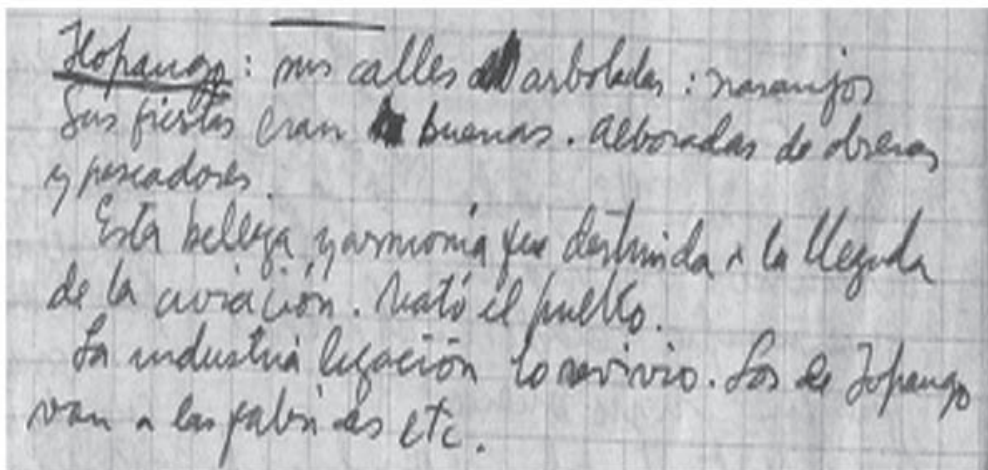 Ilopango: sus calles arboladas: naranjos
Sus fiestas eran buenas. Alboradas de obreros
y pescadores.
Esta belleza y armonía fue destruida a la llegada
de la aviación. Mató el pueblo.
La industrialización lo revivió. Los de Ilopango
van a las fábricas etc.